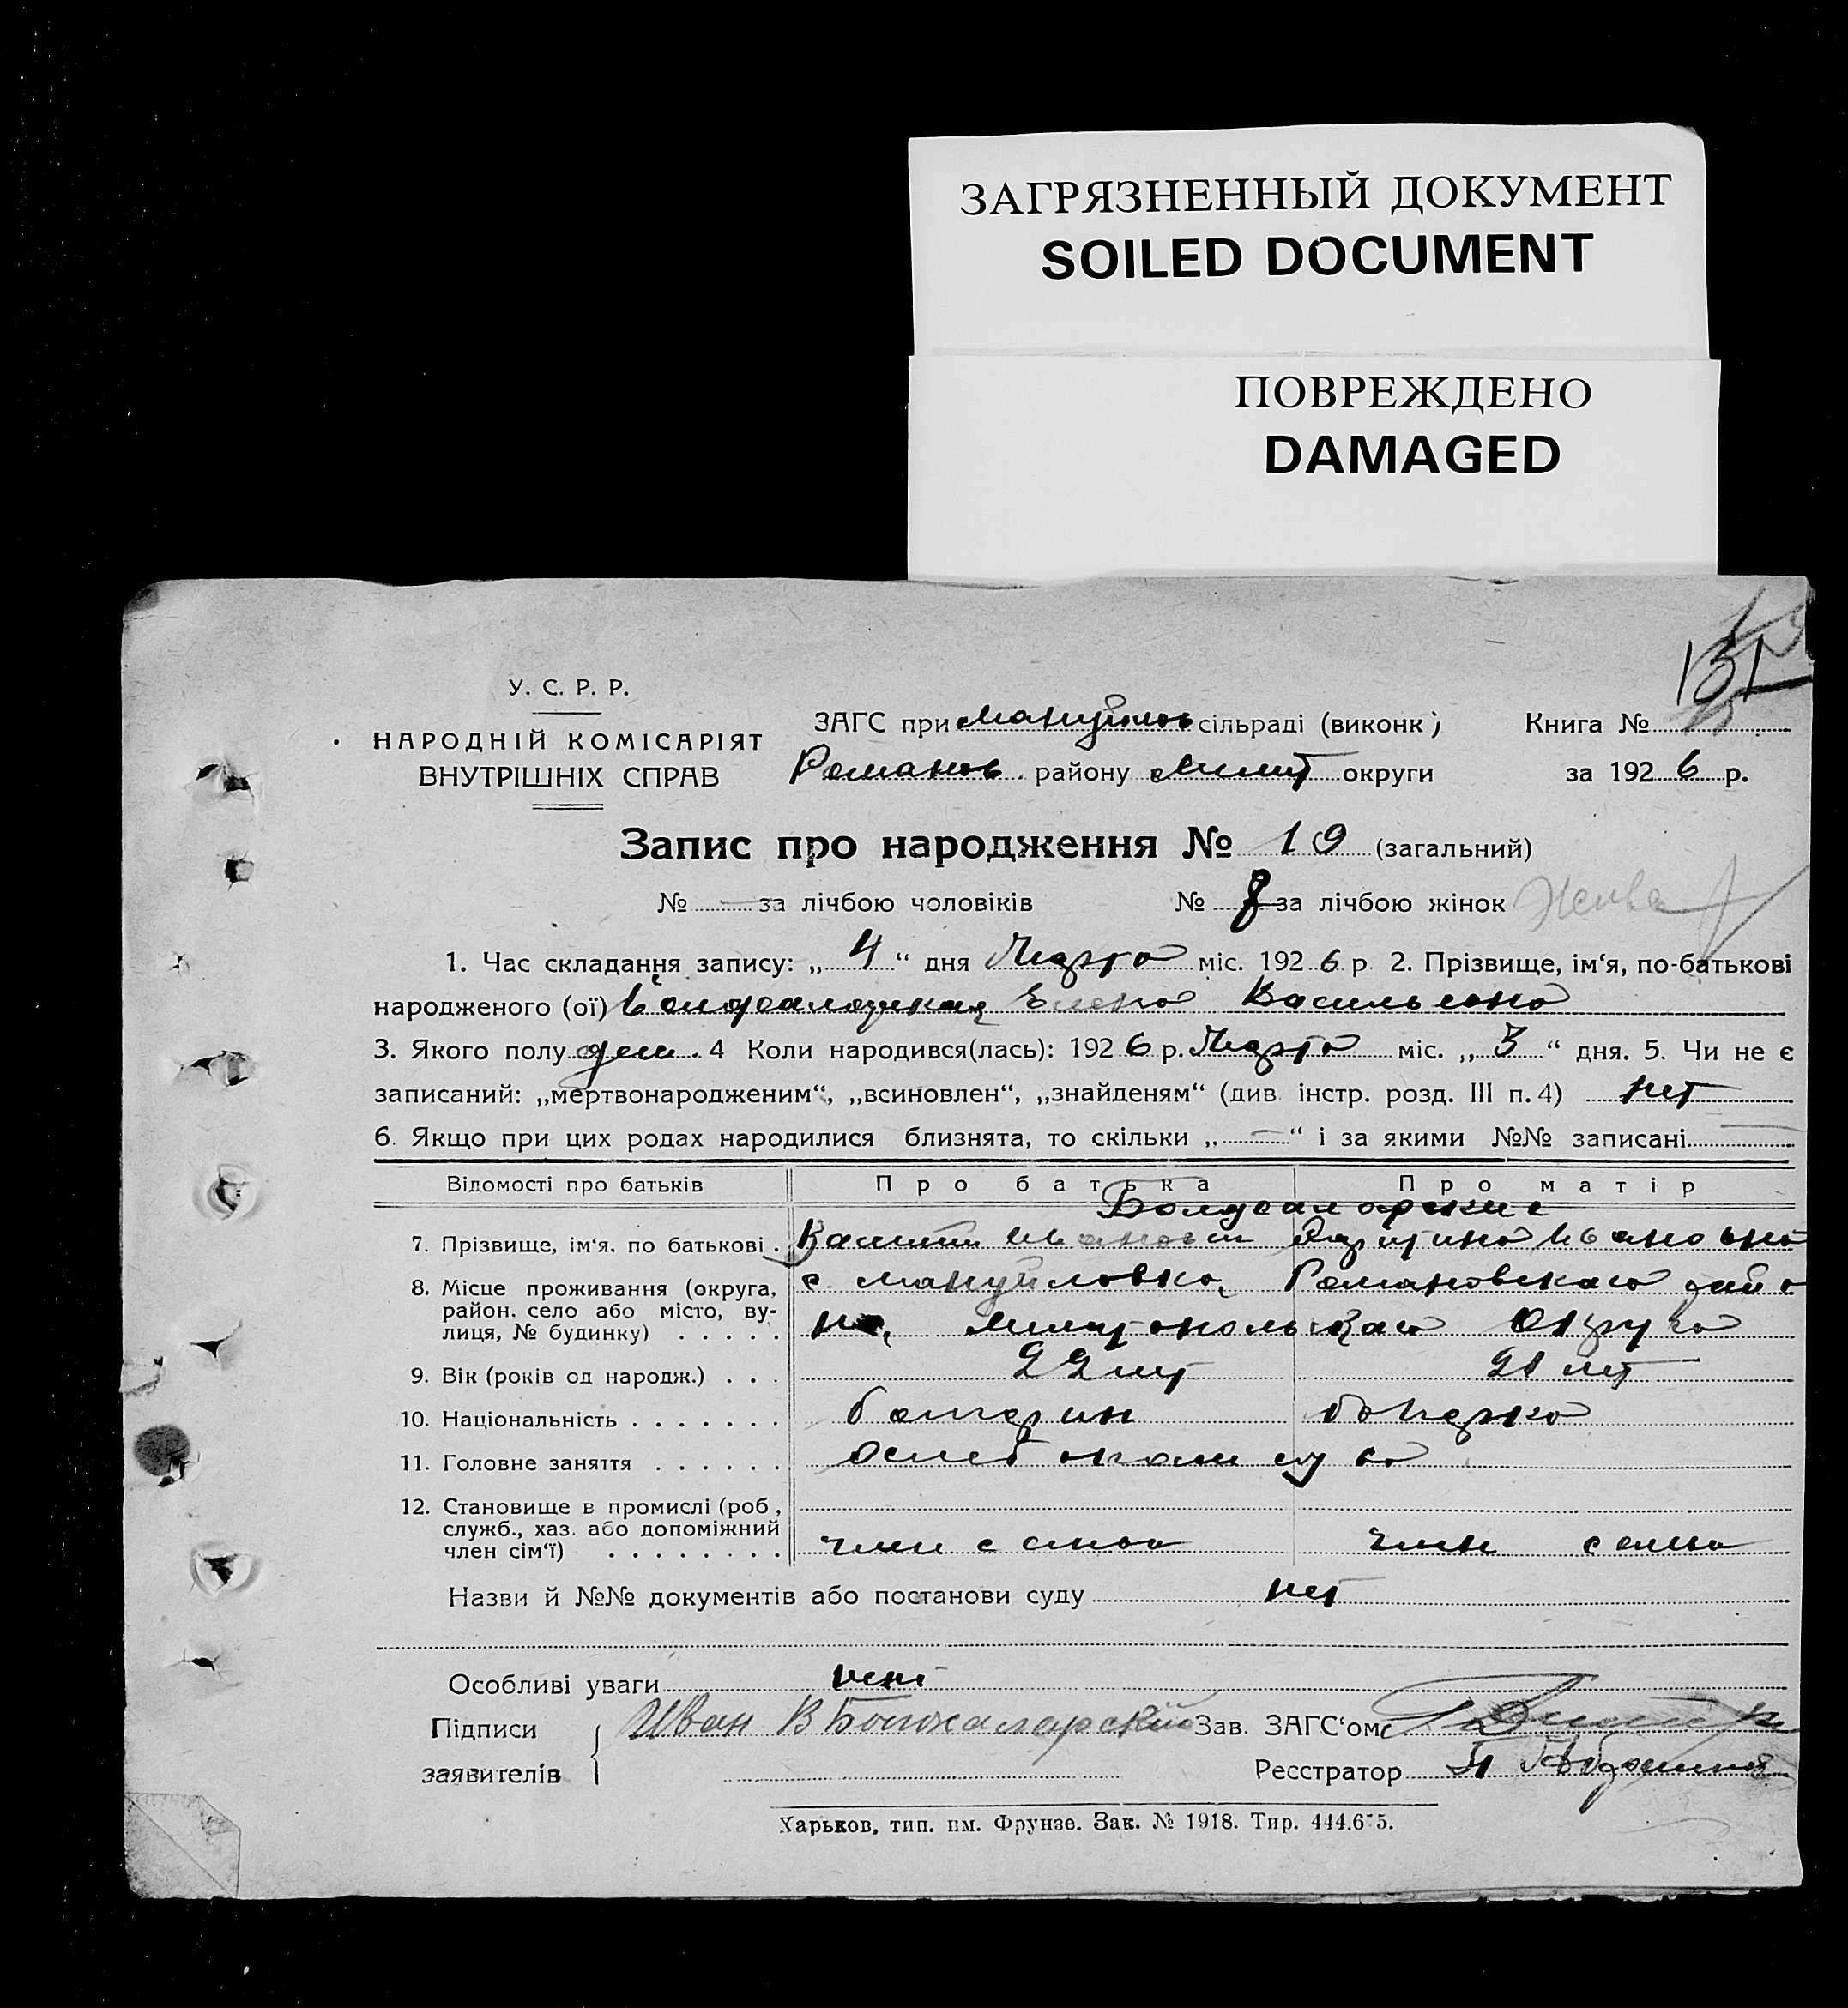 ЗАГРЯЗНЕННЫЙ ДОКУМЕНТ
SOILED DOCUMENT
ПОВРЕЖДЕНО
DAMAGED
131
У. С. Р. Р.
НАРОДНІЙ КОМІСАРІЯТ
ВНУТРІШНІХ СПРАВ
ЗАГС при Мануйлов сільраді (виконк) Книга №
Романов. району Мелит округи за 1926 р.
Запис про народження № 19 (загальний)
№ — за лічбою чоловіків № 8 за лічбою жінок
1. Час складання запису: „4“ дня Марта міс. 1926 р. 2. Прізвище, ім‘я, по-батькові
народженого (ої) Елена Васильевна
3. Якого полу жен. 4 Коли народився(лась): 1926 р. Марта міс. „3“ дня. 5. Чи не є
записаний: „мертвонародженим“, „всиновлен“, „знайденям“ (див. інстр. розд. III п. 4) нет
6. Якщо при цих родах народилися близнята, то скільки „—“ і за якими №№ записані —
Відомості про батьків Про батька Про матір
7. Прізвище, ім‘я. по батькові . Василий Иванович Ивановна
8. Місце проживання (округа, с Мануйловка, Романовского райо
район. село або місто, ву-
лиця, № будинку) . . . . . на, Мелитопольского Округа
9. Вік (років од народж.) . . . 22 лет 21 лет
10. Національність . . . . . . . болгарин болгарка
11. Головне заняття . . . . . .
12. Становище в промислі (роб.,
служб., хаз. або допоміжний
член сім‘ї) . . . . . . . . член семьи член семьи
Назви й №№ документів або постанови суду нет
Особливі уваги нет
Підписи Иван В Зав. ЗАГС‘ом
заявителів Ресстратор
Харьков, тип. им. Фрунзе. Зак. № 1918. Тир. 444.675.